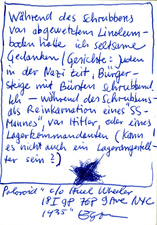 Während des Schrubbens
von abgewetztem Linoleum-
boden hatte ich seltsame
Gedanken / Gesichte: Juden
in der Nazi Zeit, Bürger-
steige mit Bürsten schrubbend,
Ich – während des Schrubbens –
als Reinkarnation eines "SS-
Mannes", von Hitler, oder eines
Lagerkommandanten (kann
es nicht auch ein Lagerangestell-
ter sein?)
Polaroid" c/o Paul Wheeler
NYC